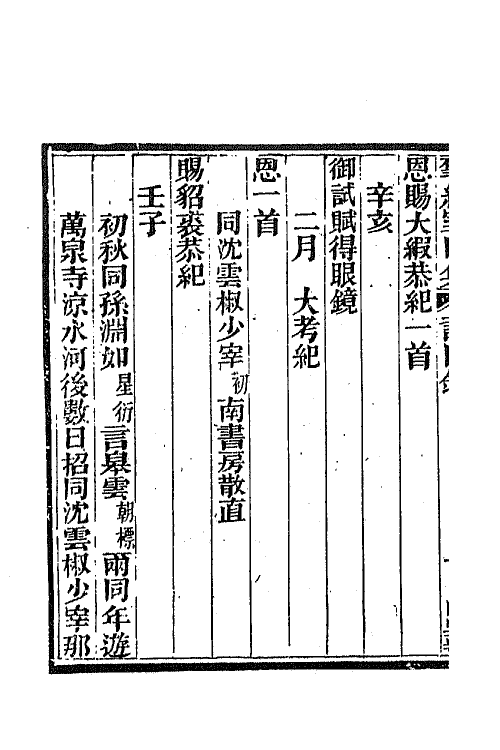 恩賜大緞恭紀一首
辛亥
御試賦得眼鏡
二月 大考紀
恩一首
同沈雲椒少宰初南書房散直
賜貂裘恭紀
壬子
初秋同孫淵如星衍言皋雲朝標兩同年遊
萬泉寺涼水河後數日招同沈雲椒少宰那